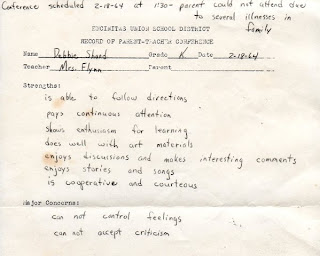 Conference scheduled 2-18-64 at 1130 - parent could not attend due
to several illnesses in
family
ENCINITAS UNION SCHOOL DISTRICT
RECORD OF PARENT-TEACHER CONFERENCE
Name Debbie Shand Grade K Date 2-18-64
Teacher Mrs. Flynn Parent
Strengths:
is able to follow directions
pays continuous attention
shows enthusiasm for learning
does well with art materials
enjoys discussions and makes interesting comments
enjoys stories and songs
is cooperative and courteous
Major Concerns:
can not control feelings
can not accept criticism